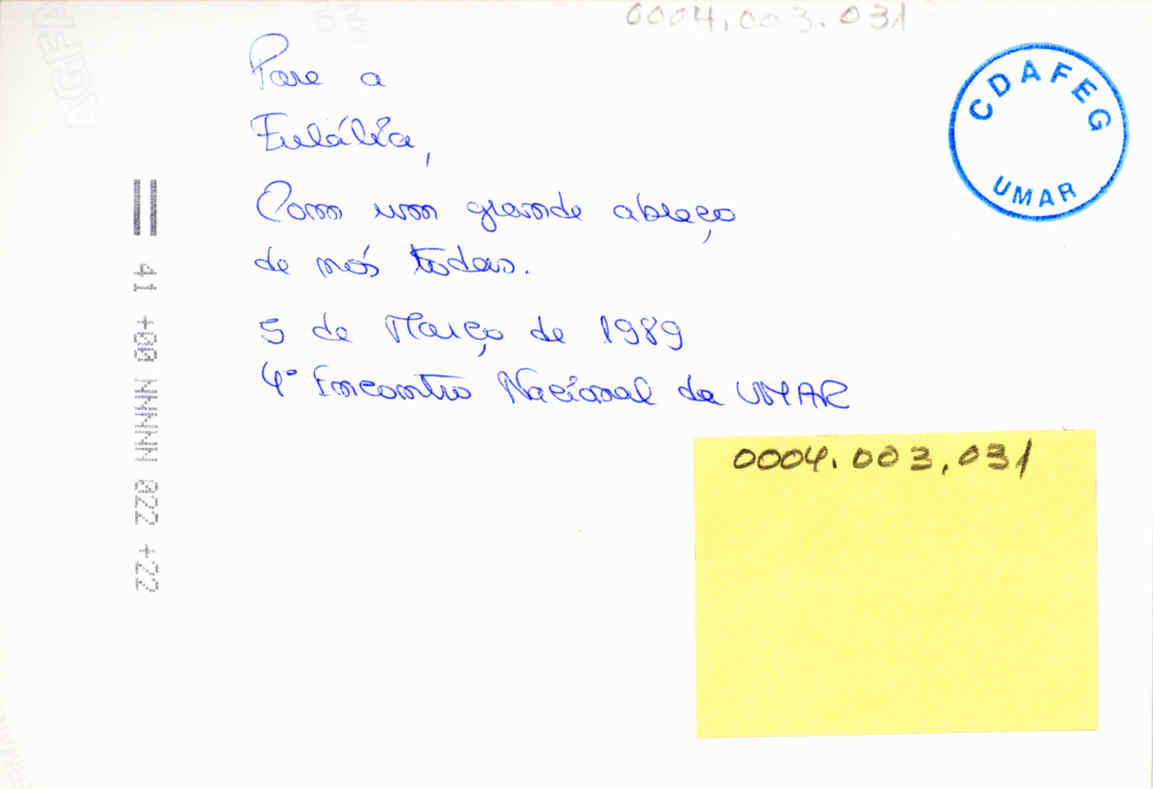 0004.003.031
CDAFEG
UMAR
Para a
Eulália,
Com um grande abraço
de nós todas.
5 de Março de 1989
4º Encontro Nacional da UMAR
0004.003.031
41 +00 NNNNN 022 +22
AGFA